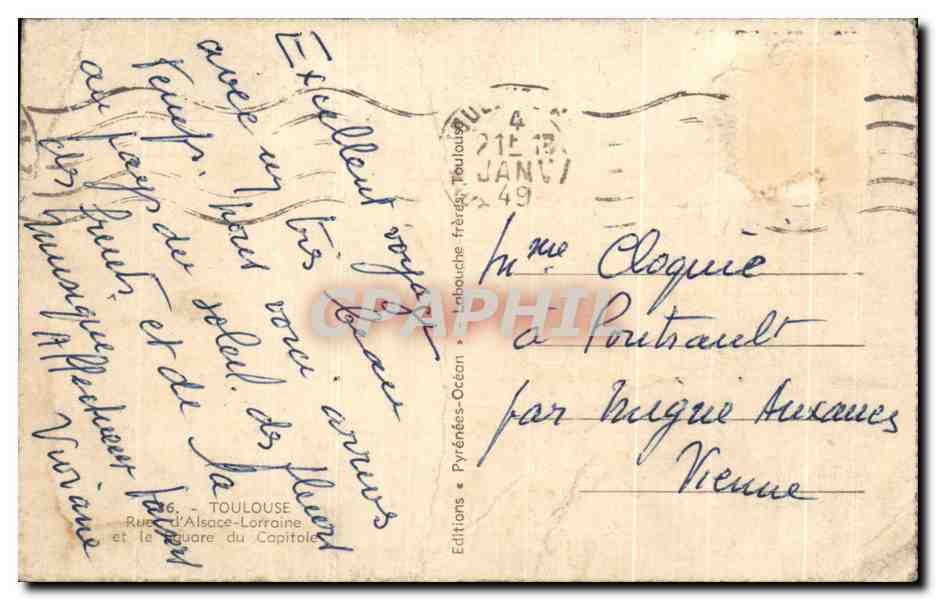 Excellent voyage
avec un très beau
temps. Nous voici arrivés
au pays du soleil. des fleurs
des fruits et de la
musique
Affectueux baisers
Viviane
36. - TOULOUSE
Rue d'Alsace-Lorraine
et le Square du Capitole
Editions « Pyrénées-Océan » Labouche frères, Toulouse
4
21H 15
JANV
49
CPAPHIL
Mme Cloquie
à Poutrault
par Migné Auxances
Vienne